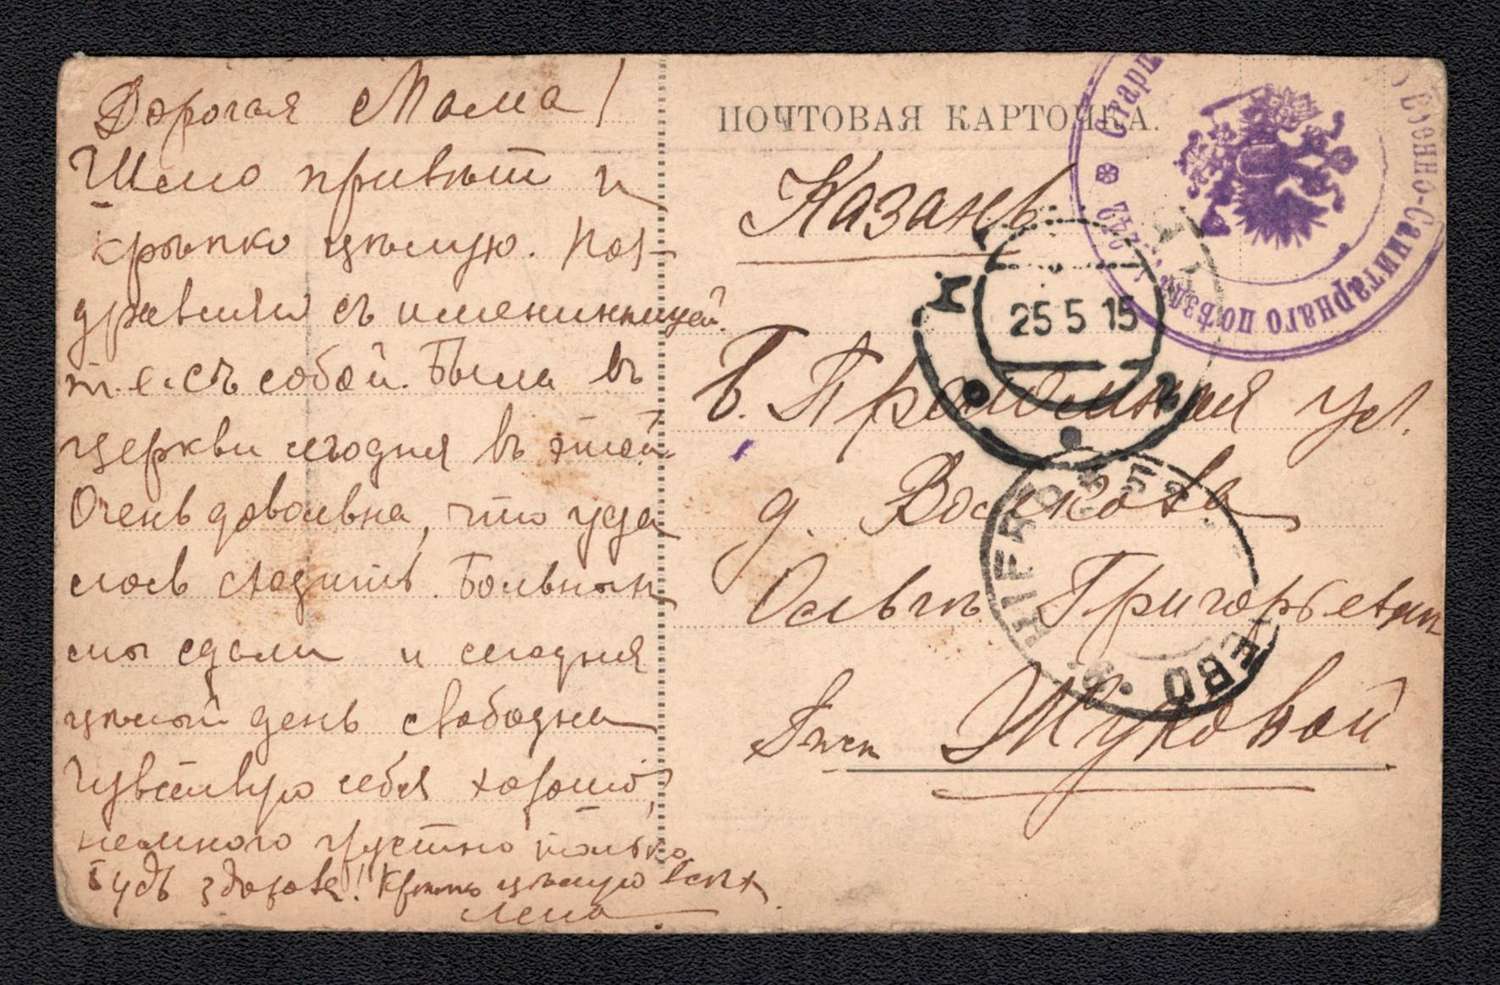 Дорогая Мама!
Шлю привѣт и
крѣпко цѣлую. Поз-
дравляю съ именинницей.
т.е. съ собой. Была въ
церкви сегодня въ этой.
Очень довольна, что уда
лось сходить. Больных
мы сдали и сегодня
цѣлый день свободна
чувствую себя хорошо,
немного грустно только
Будь здорова! Крѣпко цѣлую всѣх
Лена
ПОЧТОВАЯ КАРТОЧКА.
Казань
Б. Проломная ул.
д.
Ольгѣ Григорьевнѣ
Жуковой
25 5 15
Старш
Военно-Санитарнаго поѣзда
ЕВО